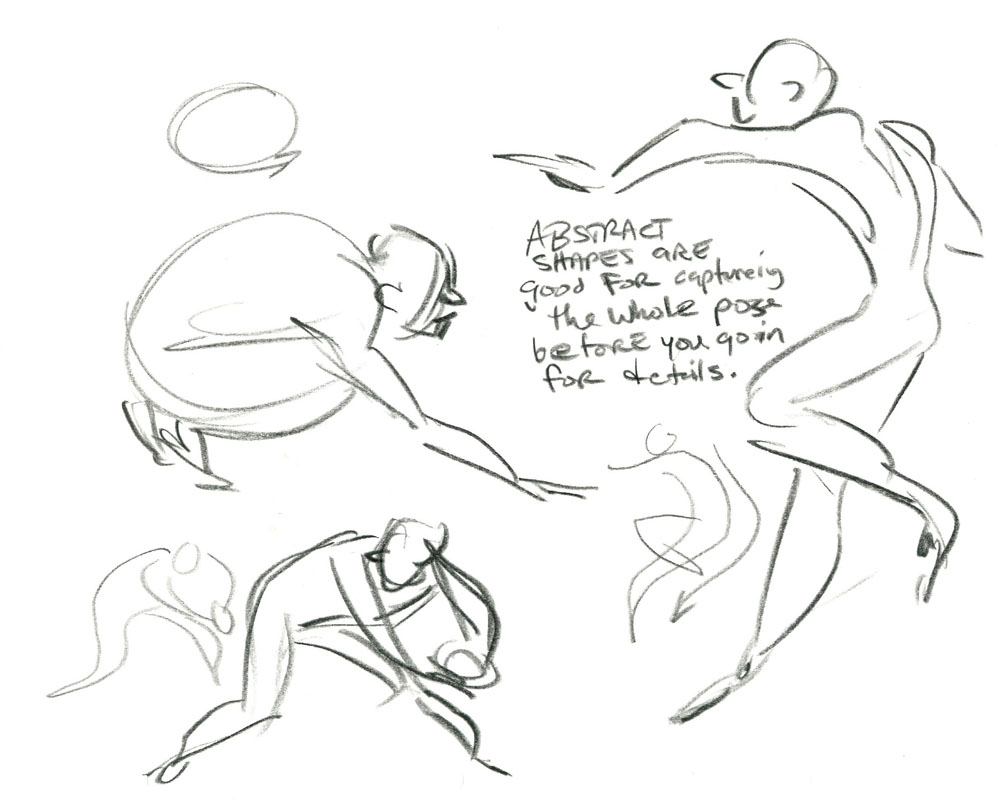 ABSTRACT
SHAPES ARE
good FOR capturing
the whole pose
before you go in
for details.